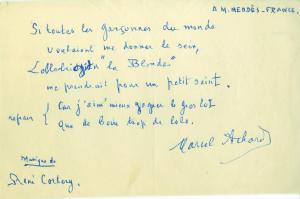 A M. MENDÈS-FRANCE.
Si toutes les garçonnes du monde
voulaient me donner le sein,
Lollobrigida "la Blonde"
me prendrait pour un petit saint.
refrain { Car j'aim' mieux gagner le gros lot
Que de boire trop de lolo.
Marcel Achard
Musique de
René Corbery.